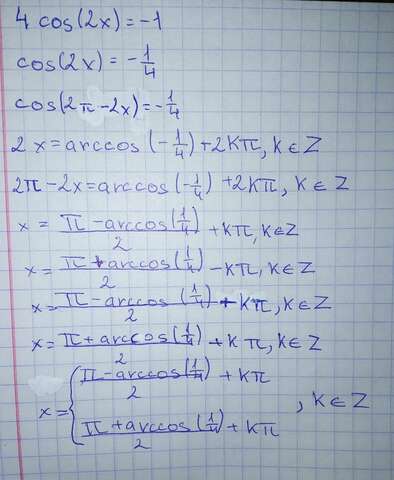 4 cos(2x) = -1
cos(2x) = -1/4
cos(2π - 2x) = -1/4
2x = arccos(-1/4) + 2Kπ, K ∈ Z
2π - 2x = arccos(-1/4) + 2Kπ, K ∈ Z
x = (π - arccos(1/4))/2 + Kπ, K ∈ Z
x = (π + arccos(1/4))/2 - Kπ, K ∈ Z
x = (π - arccos(1/4))/2 + Kπ, K ∈ Z
x = (π + arccos(1/4))/2 + Kπ, K ∈ Z
x = { (π - arccos(1/4))/2 + Kπ
(π + arccos(1/4))/2 + Kπ , K ∈ Z